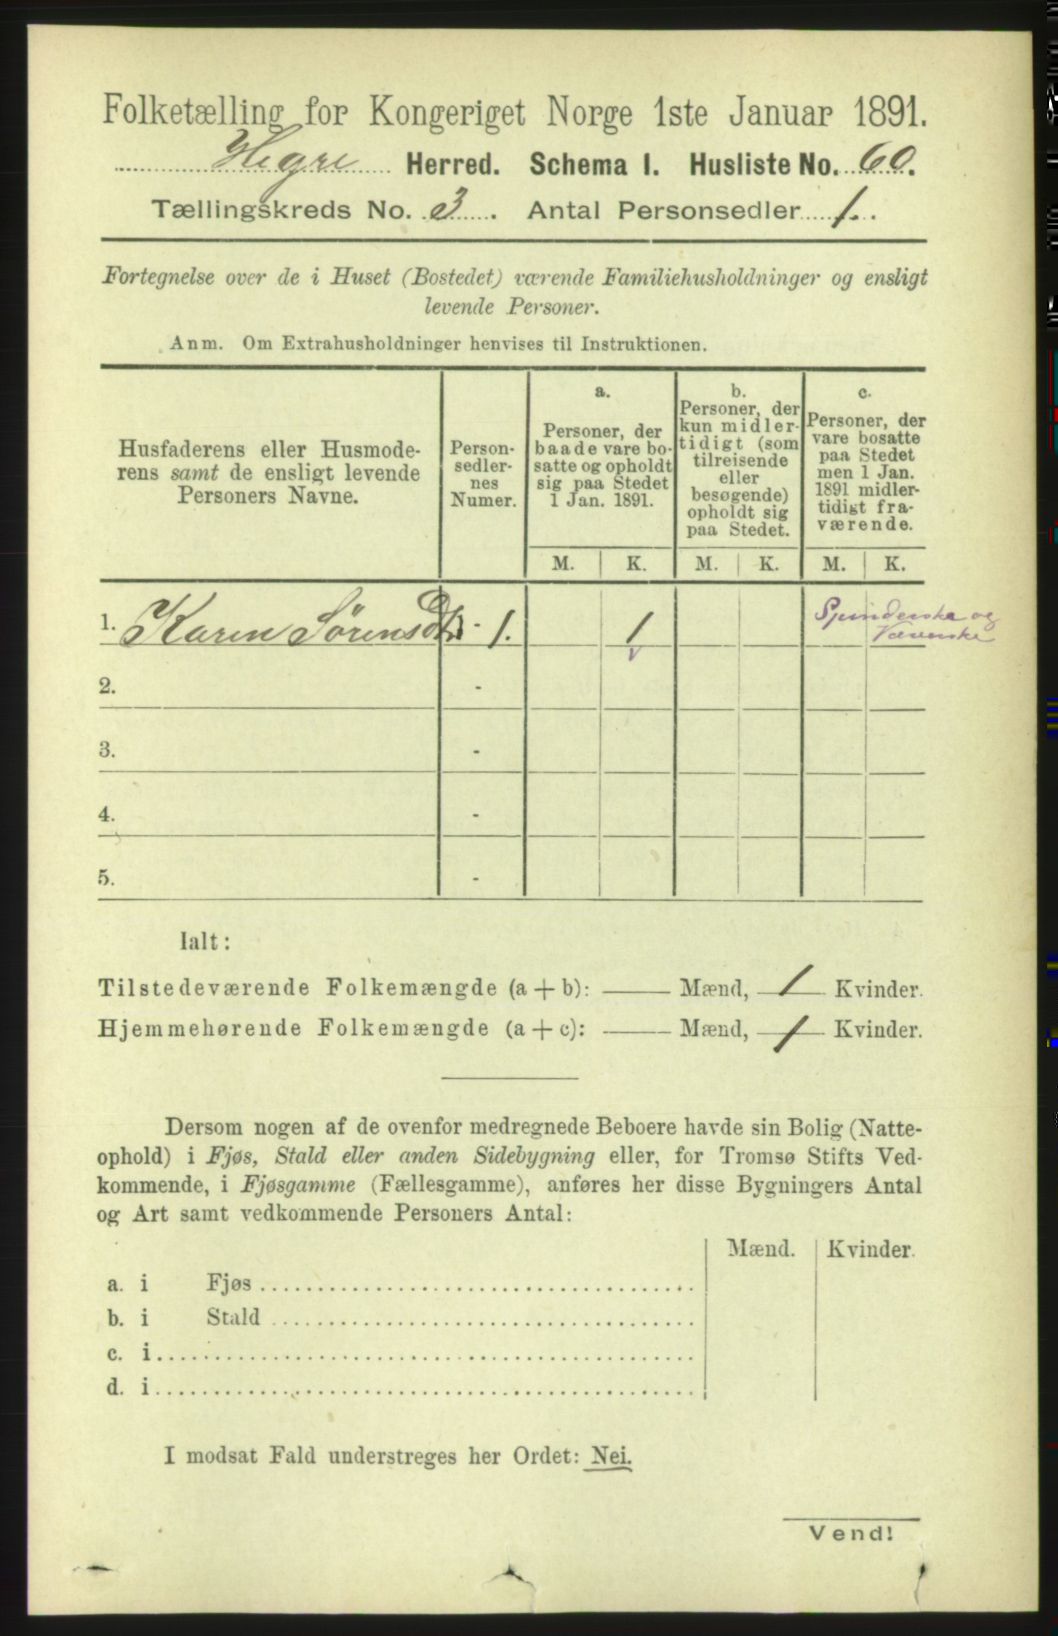 Folketælling for Kongeriget Norge 1ste Januar 1891.
Hegre Herred. Schema I. Husliste No. 60.
Tællingskreds No. 3. Antal Personsedler 1.
Fortegnelse over de i Huset (Bostedet) værende Familiehusholdninger og ensligt
levende Personer.
Anm. Om Extrahusholdninger henvises til Instruktionen.
Husfaderens eller Husmode-
rens samt de ensligt levende
Personers Navne.
Person-
sedler-
nes
Numer.
a.
Personer, der
baade vare bo-
satte og opholdt
sig paa Stedet
1 Jan. 1891.
b.
Personer, der
kun midler-
tidigt (som
tilreisende
eller
besøgende)
opholdt sig
paa Stedet.
c.
Personer, der
vare bosatte
paa Stedet
men 1 Jan.
1891 midler-
tidigt fra-
værende.
M. K. M. K. M. K.
1. Karen Sørensdt - 1. 1 Spinderske og
Væverske
2. -
3. -
4. -
5. -
Ialt:
Tilstedeværende Folkemængde (a + b): — Mænd, 1 Kvinder.
Hjemmehørende Folkemængde (a + c): — Mænd, 1 Kvinder.
Dersom nogen af de ovenfor medregnede Beboere havde sin Bolig (Natte-
ophold) i Fjøs, Stald eller anden Sidebygning eller, for Tromsø Stifts Ved-
kommende, i Fjøsgamme (Fællesgamme), anføres her disse Bygningers Antal
og Art samt vedkommende Personers Antal:
Mænd. Kvinder.
a. i Fjøs
b. i Stald
c. i
d. i
I modsat Fald understreges her Ordet: Nei.
Vend!